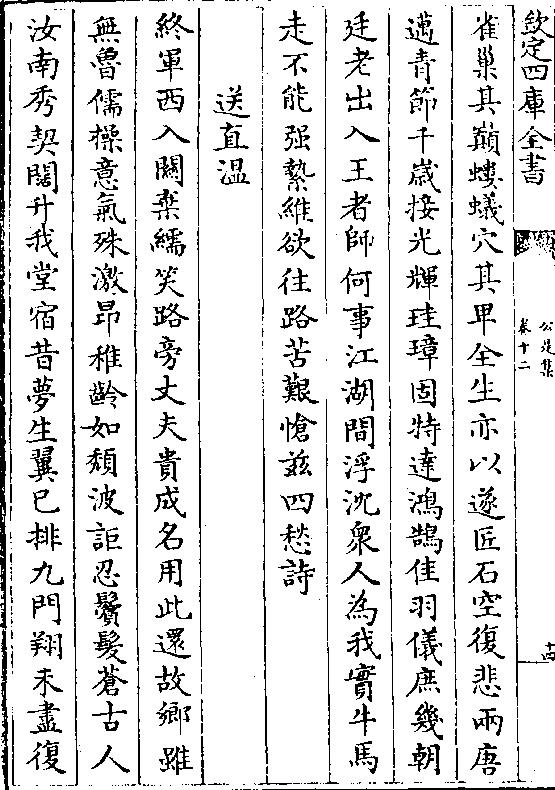 欽定四庫全書
公是集
卷十二
十四
雀巢其巔螻蟻穴其卑全生亦以遂匠石空復悲兩唐
邁青節千歲接光輝珪璋固特達鴻鵠佳羽儀庶幾朝
廷老出入王者師何事江湖間浮沈衆人為我實牛馬
走不能强縶維欲往路苦艱愴兹四愁詩
送直温
終軍西入關棄繻笑路旁丈夫貴成名用此還故鄉雖
無魯儒操意氣殊激昂稚齡如頹波詎忍鬢髮蒼古人
汝南秀契闊升我堂宿昔夢生翼已排九門翔未盡復